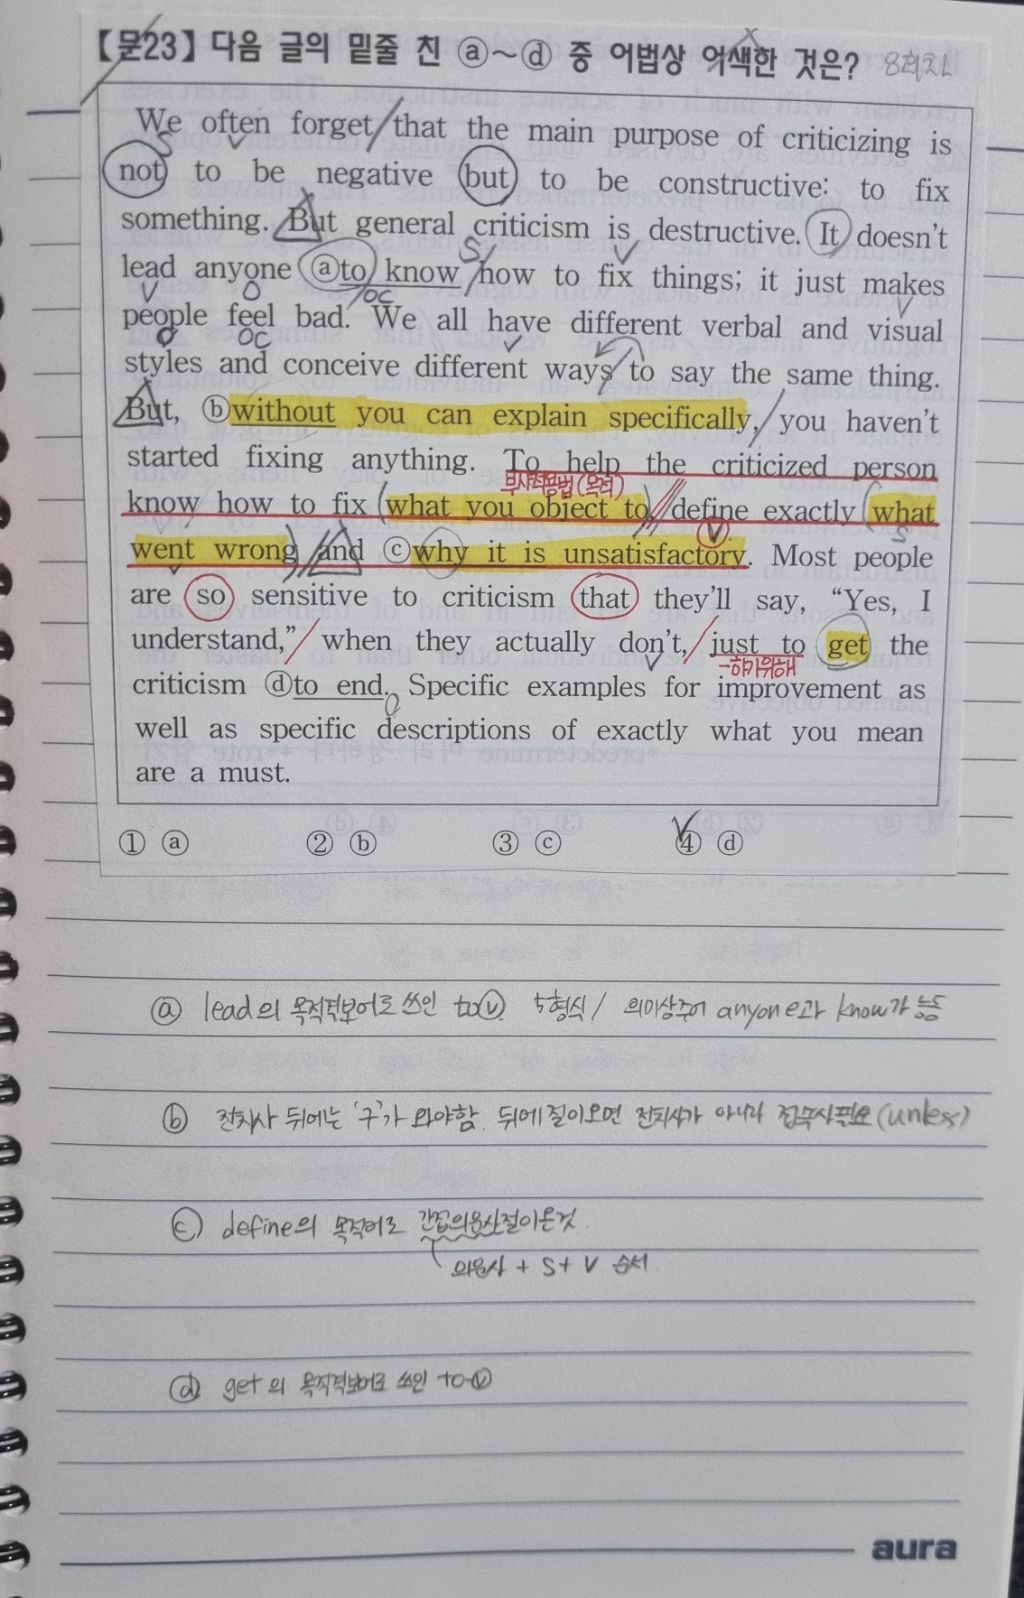 【문23】 다음 글의 밑줄 친 ⓐ~ⓓ 중 어법상 어색한 것은? 8회차
We often forget that the main purpose of criticizing is
not to be negative but to be constructive: to fix
something. But general criticism is destructive. It doesn't
S
lead anyone ⓐto know how to fix things; it just makes
V O OC
people feel bad. We all have different verbal and visual
O OC
styles and conceive different ways to say the same thing.
But, ⓑwithout you can explain specifically, you haven't
started fixing anything. To help the criticized person
부사적용법(목적)
know how to fix what you object to, define exactly what
V S
went wrong and ⓒwhy it is unsatisfactory. Most people
are so sensitive to criticism that they'll say, “Yes, I
understand,” when they actually don't, just to get the
-하기위해
criticism ⓓto end. Specific examples for improvement as
well as specific descriptions of exactly what you mean
are a must.
① ⓐ ② ⓑ ③ ⓒ ④ ⓓ
ⓐ lead의 목적격보어로 쓰인 toⓥ 5형식 / 의미상주어 anyone과 know가 능동
ⓑ 전치사 뒤에는 '구'가 와야함. 뒤에 절이오면 전치사가 아니라 접속사필요 (unless)
ⓒ define의 목적어로 간접의문사절이온것.
의문사 + S + V 순서
ⓓ get의 목적격보어로 쓰인 to-ⓥ
aura